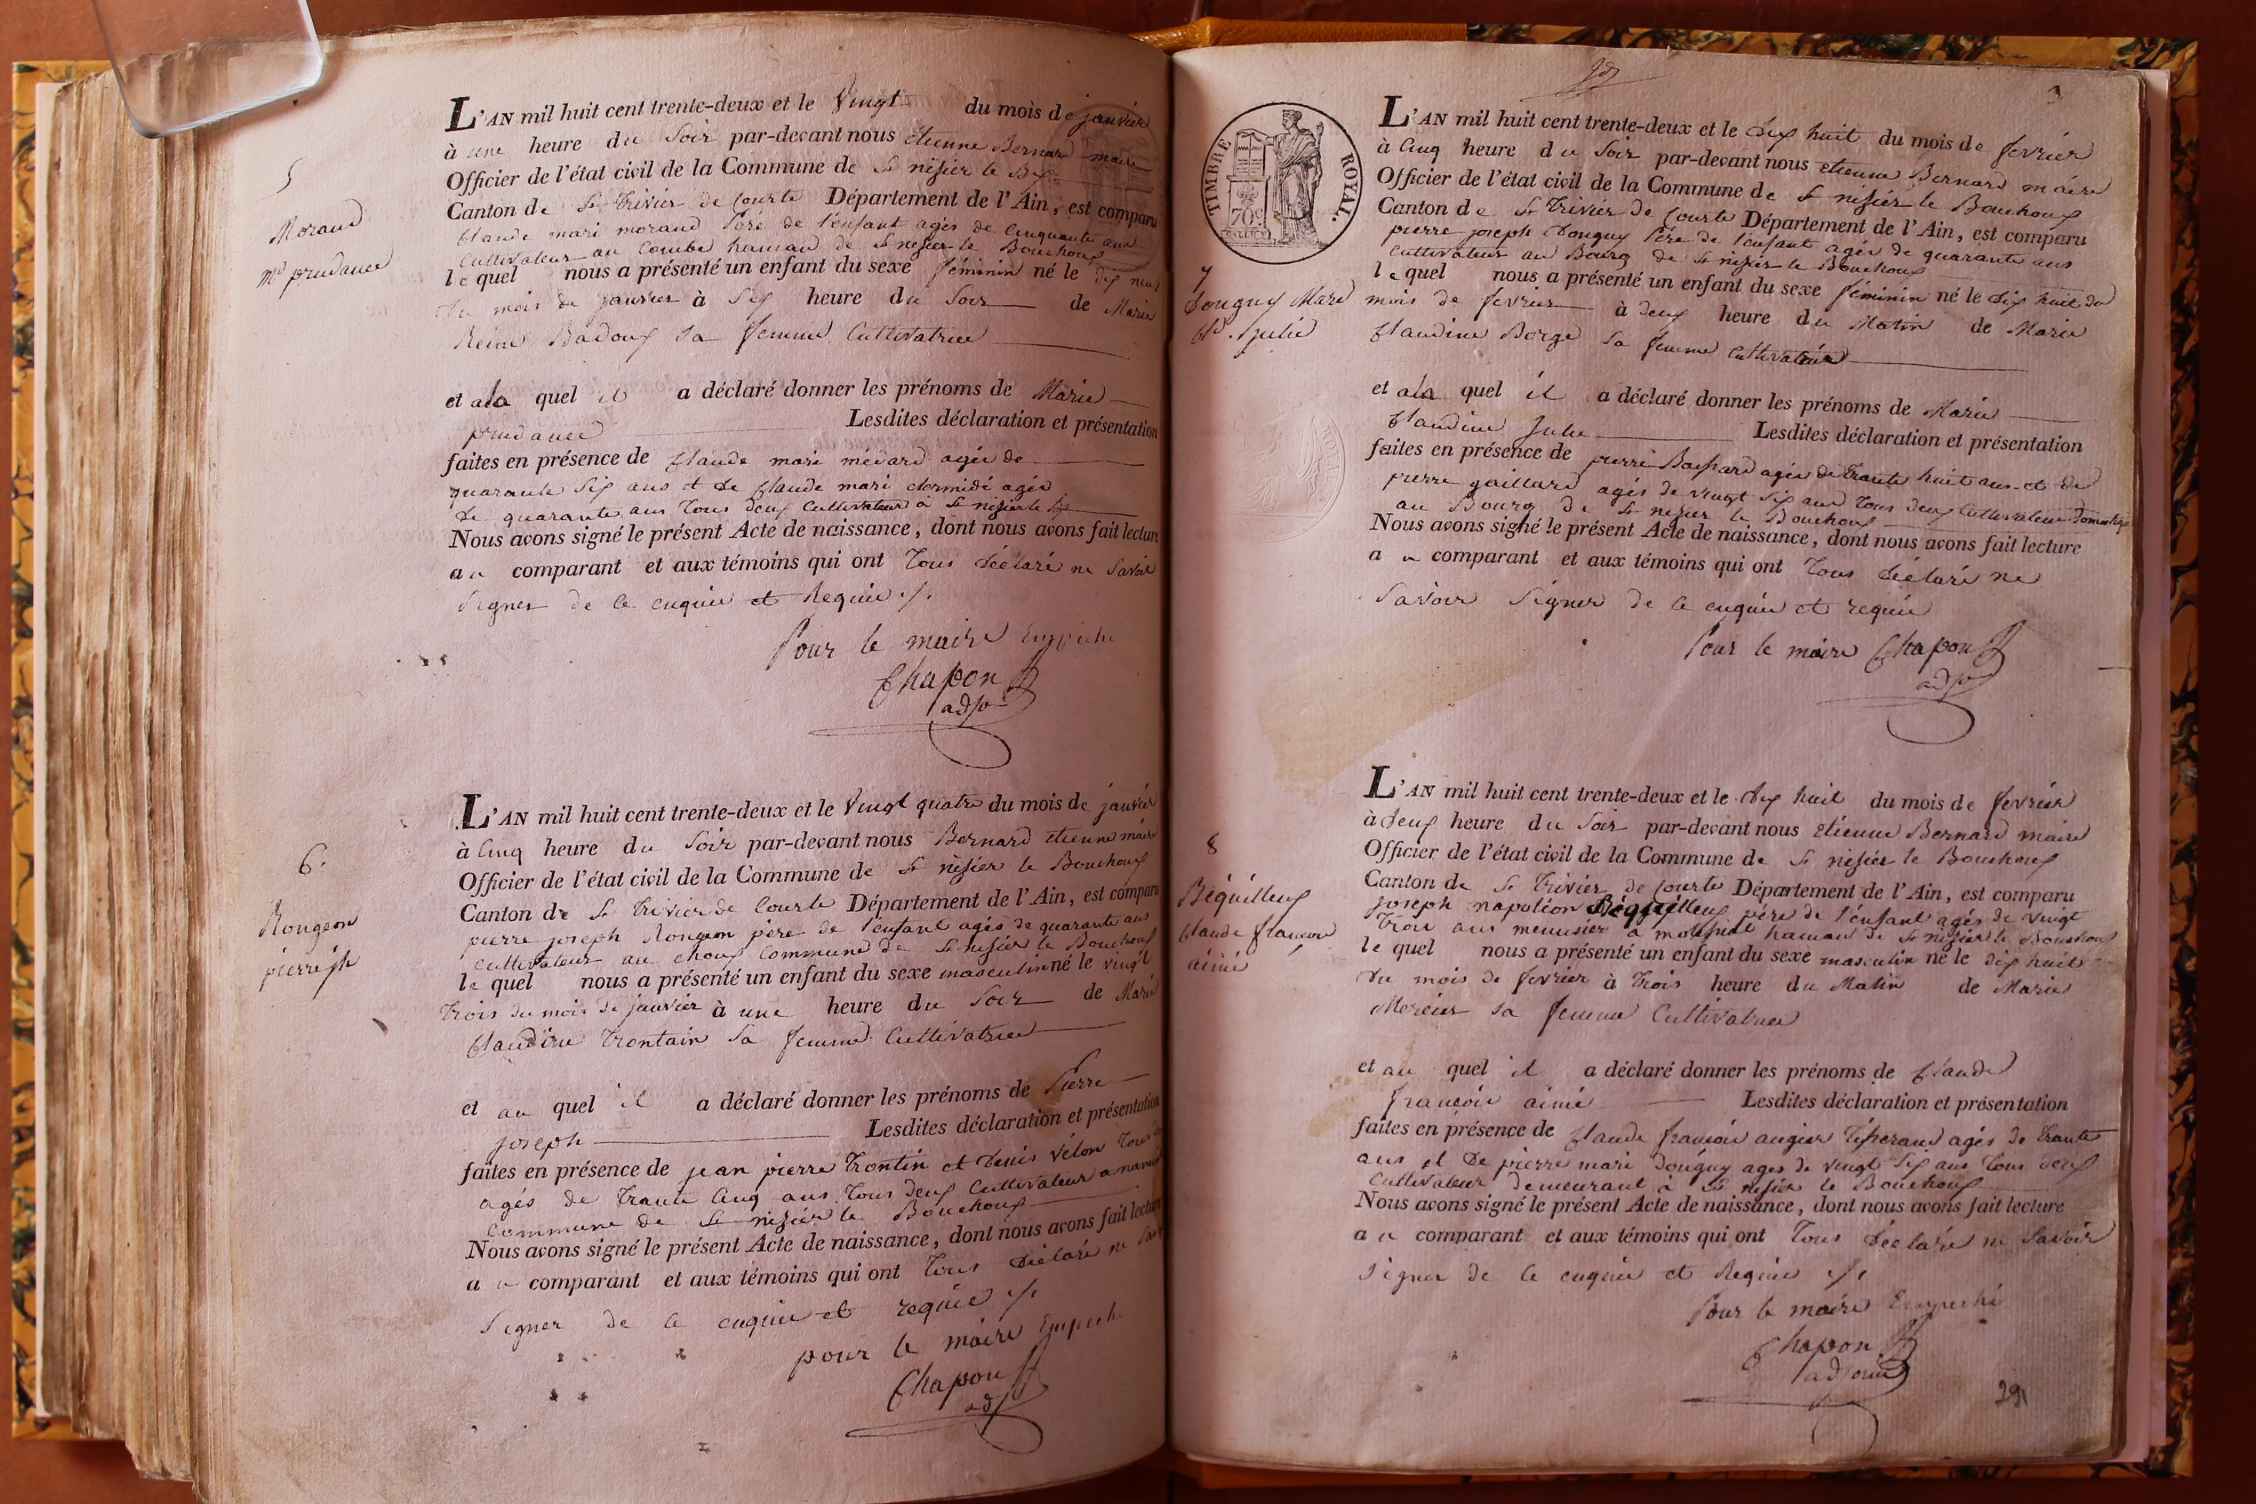 5
Morand
md prudance
L'AN mil huit cent trente-deux et le vingt du mois de janvier
à une heure du soir par-devant nous étienne Bernard maire
Officier de l'état civil de la Commune de St nisier le
Canton de St trivier de Courte Département de l'Ain, est comparu
Claude mari morand Père de l'enfant agés de Cinquante ans
Cultivateur au Combe hamau de St nisier le Bouchoux
lequel nous a présenté un enfant du sexe féminin né le dix neuf
du mois de janvier à six heure du soir de Marie
Reine Badoux sa femme Cultivatrice
et ala quel il a déclaré donner les prénoms de Marie
prudance Lesdites déclaration et présentation
faites en présence de Claude mari médard agés de
quarante six ans et de Claude mari agés
de quarante ans tous deux Cultivateur à St nisier le
Nous avons signé le présent Acte de naissance, dont nous avons fait lecture
au comparant et aux témoins qui ont tous déclaré ne savoir
signer de ce enquie et Requie ./.
Pour le maire Empeche
Chapon
adjo
6.
Rongeon
pierre jh
L'AN mil huit cent trente-deux et le vingt quatre du mois de janvier
à Cinq heure du soir par-devant nous Bernard étienne maire
Officier de l'état civil de la Commune de St nisier le Bouchoux
Canton de St trivier de Courte Département de l'Ain, est comparu
pierre joseph Rongeon père de l'enfant agés de quarante ans
Cultivateur au choux Commune de St nisier le Bouchoux
lequel nous a présenté un enfant du sexe masculin né le vingt
trois du mois de janvier à une heure du soir de Marie
Claudine trontain sa femme Cultivatrice
et au quel il a déclaré donner les prénoms de Pierre
joseph Lesdites déclaration et présentation
faites en présence de jean pierre trontin et denis vélon tous
agés de trante Cinq ans tous deux Cultivateur a
Commune de St nisier le Bouchoux
Nous avons signé le présent Acte de naissance, dont nous avons fait lecture
au comparant et aux témoins qui ont tous déclaré ne
signer de ce enquie et requie ./.
pour le maire Empeche
Chapon
adj
3
TIMBRE ROYAL.
70c
7
Donguy Mare
Cl. Julie
L'AN mil huit cent trente-deux et le dix huit du mois de fevrier
à Cinq heure du soir par-devant nous etienne Bernard maire
Officier de l'état civil de la Commune de St nisier le Bouchoux
Canton de St trivier de Courte Département de l'Ain, est comparu
pierre joseph Donguy Père de l'enfant agés de quarante ans
Cultivateur au Bourg de St nisier le Bouchoux
lequel nous a présenté un enfant du sexe féminin né le dix huit du
mois de fevrier à deux heure du Matin de Marie
Claudine Borge sa femme Cultivateur
et ala quel il a déclaré donner les prénoms de Marie
Claudine Julie Lesdites déclaration et présentation
faites en présence de pierre agés de trante huit ans et de
pierre gaillard agés de vingt six ans tous deux Cultivateur
au Bourg de St nisier le Bouchoux
Nous avons signé le présent Acte de naissance, dont nous avons fait lecture
au comparant et aux témoins qui ont tous déclaré ne
savoir signer de ce enquie et requie
Pour le maire Chapon
adjo
8
Béquilleux
Claude francois
aimé
L'AN mil huit cent trente-deux et le dix huit du mois de fevrier
à deux heure du soir par-devant nous etienne Bernard maire
Officier de l'état civil de la Commune de St nisier le Bouchoux
Canton de St trivier de Courte Département de l'Ain, est comparu
joseph napoléon Béquilleux père de l'enfant agés de vingt
trois ans menuisier à hamau de St nisier le Bouchoux
lequel nous a présenté un enfant du sexe masculin né le dix huit
du mois de fevrier à trois heure du Matin de Marie
Mercier sa femme Cultivatrice
et au quel il a déclaré donner les prénoms de Claude
francois aimé Lesdites déclaration et présentation
faites en présence de Claude francois augier agés de trante
ans et de pierre mari Donguy ages de vingt six ans tous deux
Cultivateur demeurant à St nisier le Bouchoux
Nous avons signé le présent Acte de naissance, dont nous avons fait lecture
au comparant et aux témoins qui ont tous déclaré ne savoir
signer de ce enquie et Requie ./.
Pour le maire Empeché
Chapon
adjoint
291